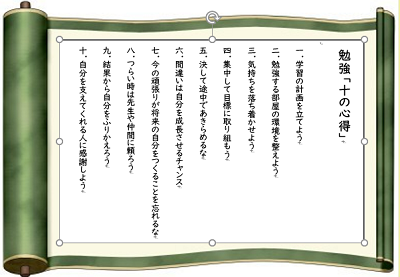 勉強「十の心得」
一．学習の計画を立てよう
二．勉強する部屋の環境を整えよう
三．気持ちを落ち着かせよう
四．集中して目標に取り組もう
五．決して途中であきらめるな
六．間違いは自分を成長させるチャンス
七．今の頑張りが将来の自分をつくることを忘れるな
八．つらい時は先生や仲間に頼ろう
九．結果から自分をふりかえろう
十．自分を支えてくれる人に感謝しよう